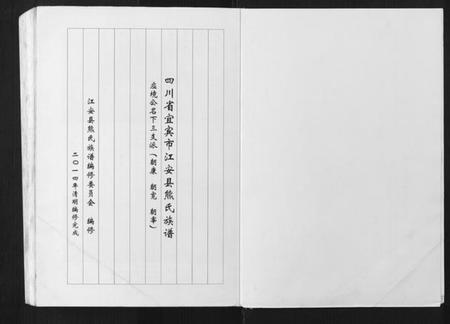 四川省宜宾市江安县熊氏族谱
应境公名下三支派（朝廉 朝宪 朝事）
江安县熊氏族谱编修委员会 编修
二〇一四年清明编修完成